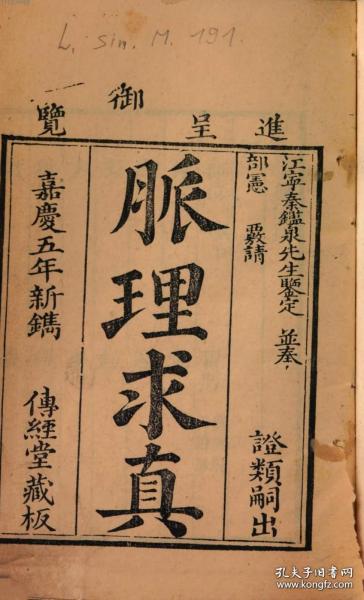 L. sin. M. 191.
進呈御覽
江寧秦鑑泉先生鑒定 並奏
部憲 覈請
證類嗣出
脈理求真
嘉慶五年新鐫 傳經堂藏板
孔夫子旧书网
www.kongfz.com